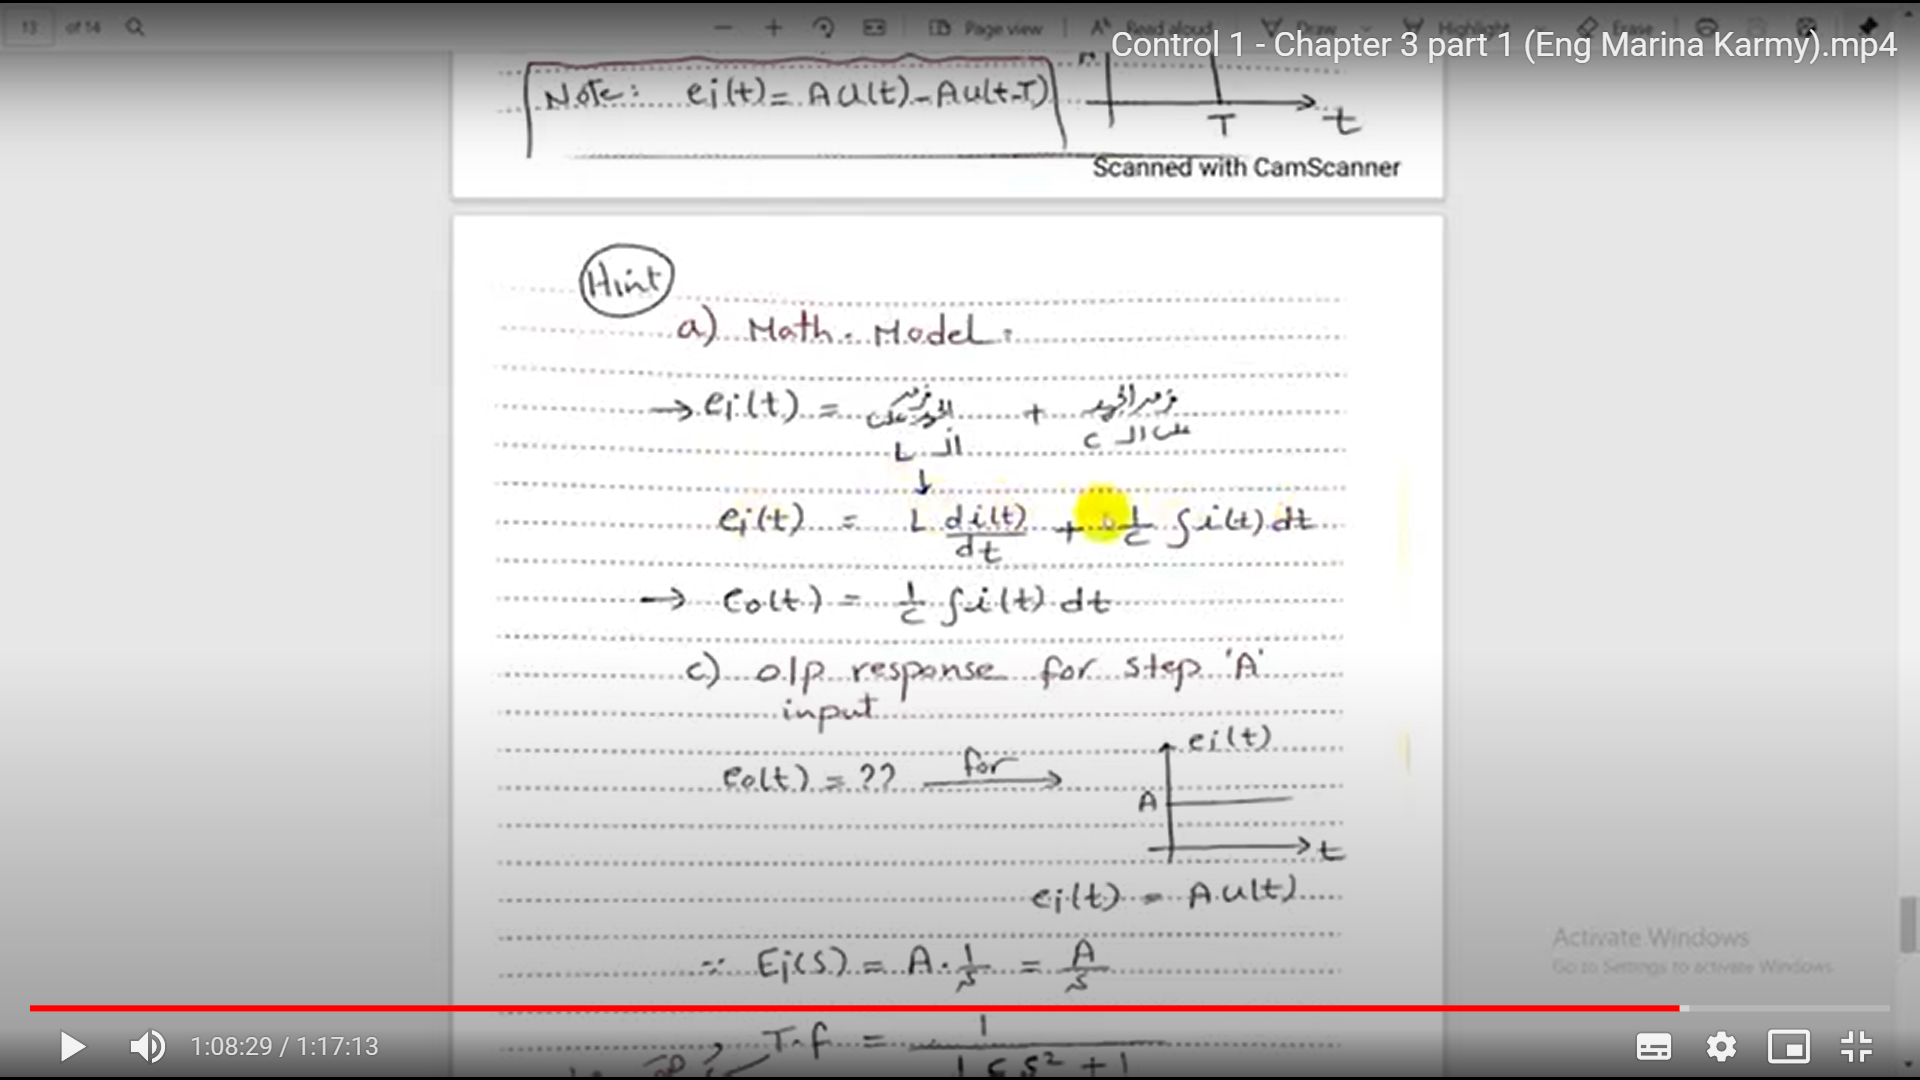 13 of 14
Page view
Read aloud
Draw
Highlight
Erase
Control 1 - Chapter 3 part 1 (Eng Marina Karmy).mp4
Note: ei(t) = A u(t) - A u(t-T)
T
t
Scanned with CamScanner
Hint
a) Math. Model:
→ ei(t) = فرق الجهد على الـ L + فرق الجهد على الـ C
↓
ei(t) = L di(t)/dt + 1/C ∫i(t) dt
→ eo(t) = 1/C ∫i(t) dt
c) o/p response for step 'A'
input
ei(t)
eo(t) = ?? for →
A
t
ei(t) = A.u(t)
∵ Ei(s) = A . 1/s = A/s
T.f = 1/LCS² + 1
Activate Windows
Go to Settings to activate Windows.
1:08:29 / 1:17:13